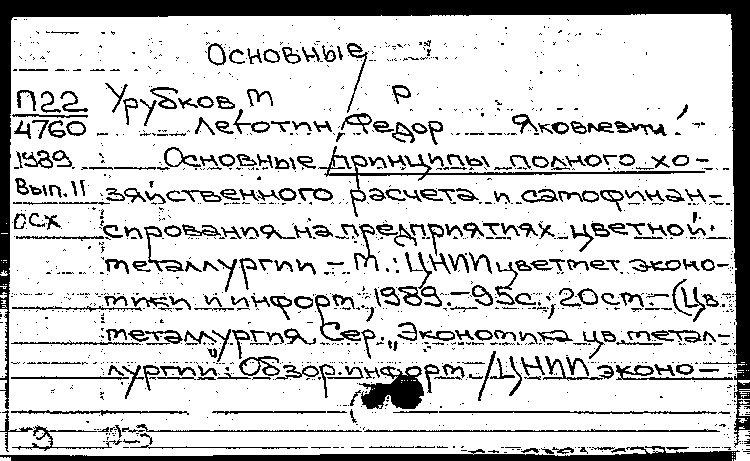 Основные
П22 Урубков, М Р
4760 Леготин, Федор Яковлевич.-
1989 Основные принципы полного хо-
Вып.11 зяйственного расчета и самофинан-
ОСХ сирования на предприятиях цветной
металлургии - М.: ЦНИИцветмет эконо-
мики и информ., 1989.-95с.; 20см.-(Цв.
металлургия. Сер. „Экономика цв. метал-
лургии": Обзор. информ. / ЦНИИ эконо-
9 П-3